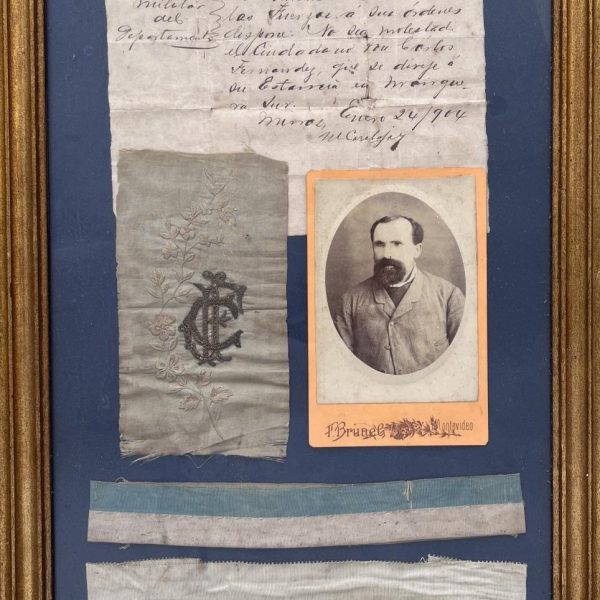 Militar
del
Departamento
las fuerzas á sus órdenes
dispone No sea molestado
el Ciudadano Don Carlos
Fernandez, que se dirije á
su Estancia en Mangue-
ra Sur.
Minas, Enero 24/904
F. Brunel Montevideo